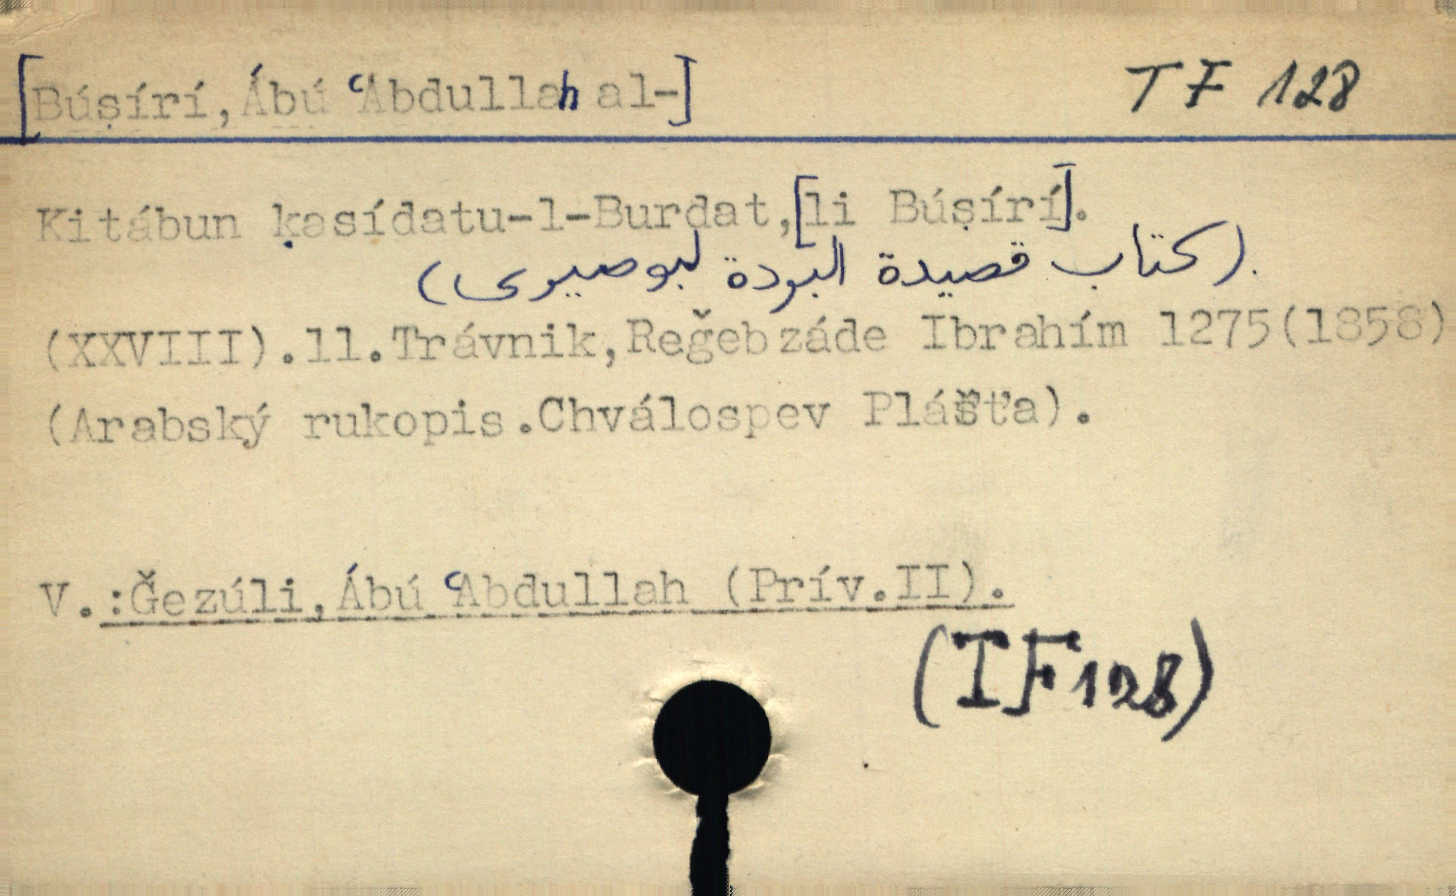 [Búṣírí,Ábú ʿAbdullah al-] TF 128
Kitábun ḳasídatu-l-Burdat,[li Búṣírí].
(كتاب قصيدة البردة لبوصيرى).
(XXVIII).11.Trávnik,Reǧebzáde Ibrahím 1275(1858)
(Arabský rukopis.Chválospev Plášťa).
V.:Ǧezúli,Ábú ʿAbdullah (Prív.II).
(TF128)